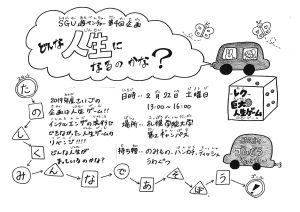 SGU 原ベンチャー 第4回 企画
どんな 人生に
なるのかな？
たのしくみんなであそぼう
2019年度さいごの
企画は人生ゲーム!!
インフルエンザの流行で
できなかった人生ゲームの
リベンジ!!!!
どんな人生が
まっているのかな？
日時…2月22日 土曜日
13:00～16:00
場所…札幌学院大学
第2キャンパス
持ち物…のみもの、ハンカチ、ティッシュ
うわぐつ
レク…
巨大
人生ゲーム